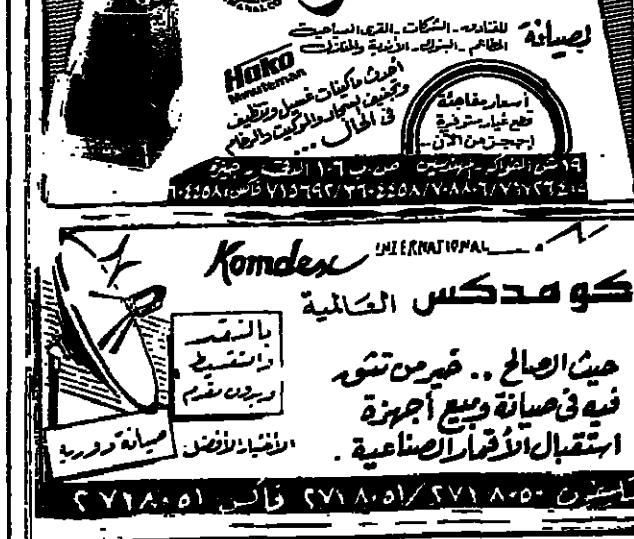 لصيانة
للفنادق - الشركات - القرى السياحية
المطاعم - البنوك - الأندية والمنازل
Hako
Minuteman
أحدث ماكينات غسيل وتنظيف
وتجفيف السجاد والموكيت والرخام
فى الحال ...
أسعار مفاجئة
قطع غيار متوفرة
إحجز من الآن
١٩ ش الفواكه - مهندسين ص.ب ١٠٦ الدقى - جيزة
Komdex INTERNATIONAL
كومدكس العالمية
بالنقد
والتقسيط
وبدون مقدم
حيث الصالح .. خير من تثق
فيه فى صيانة وبيع أجهزة
استقبال الأقمار الصناعية .
صيانة دورية
الأختيار الأفضل
تليفون ٢٧١٨٠٥٠ / ٢٧١٨٠٥١ فاكس ٢٧١٨٠٥١